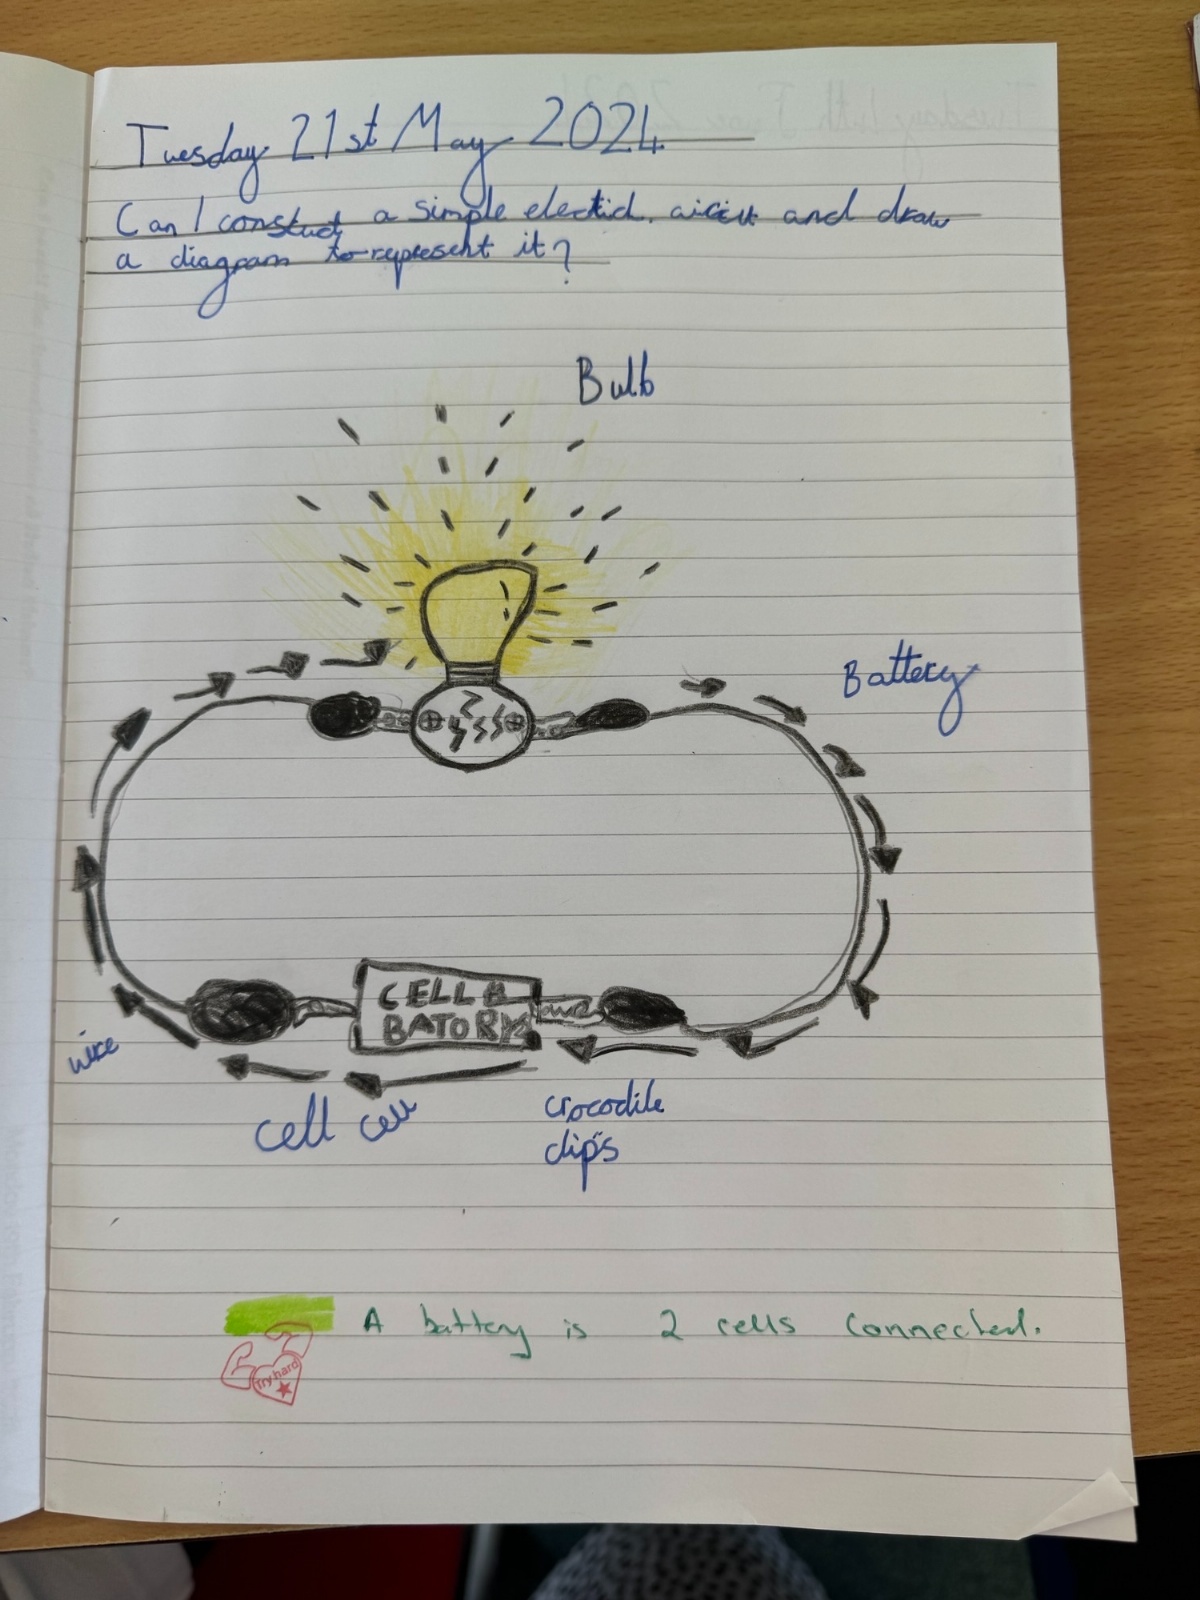 Tuesday 21st May 2024
Can I construct a simple electric circuit and draw
a diagram to represent it?
Bulb
Battery
CELL &
BATORY
wire
cell cell
crocodile
clips
A battery is 2 cells connected.
Try hard